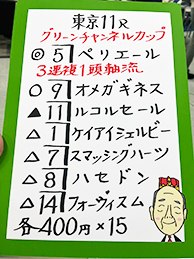 東京11R
グリーンチャンネルカップ
◎5 ペリエール
3連複1頭軸流
○9 オメガギネス
▲11 ルコルセール
△1 ケイアイシェルビー
△7 スマッシングハーツ
△8 ハセドン
△14 フォーヴィスム
各400円×15